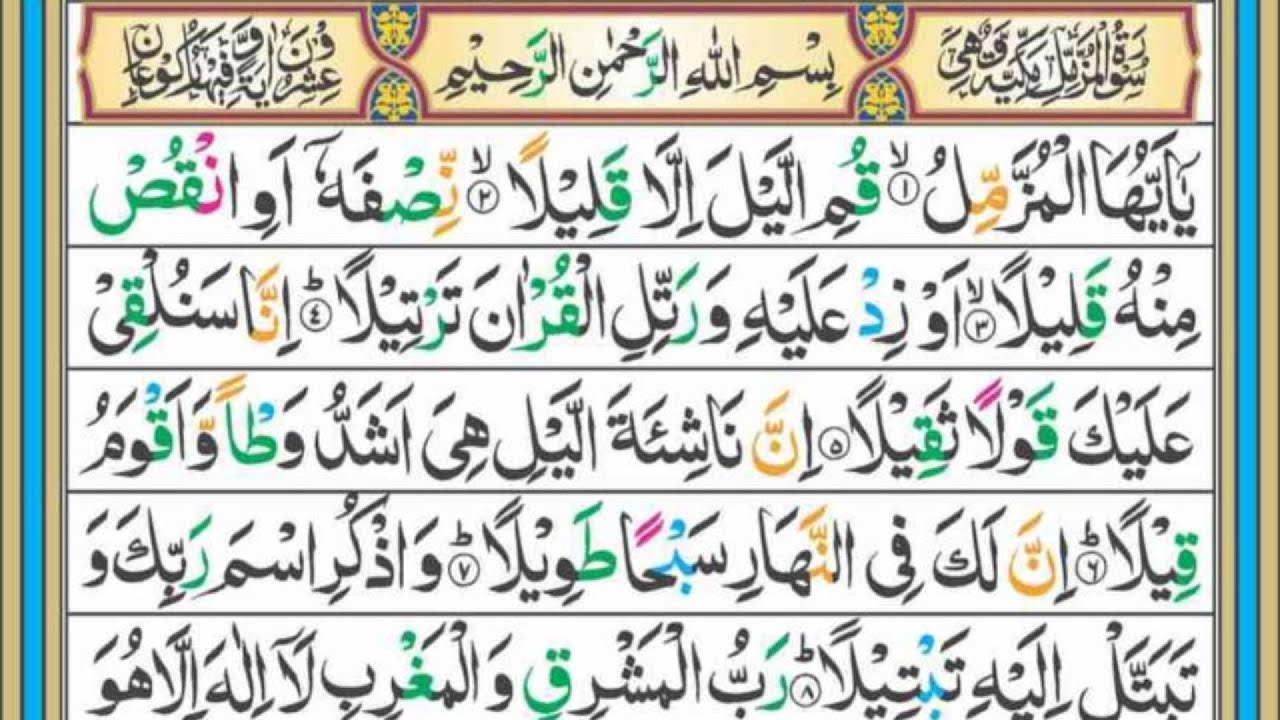 سُوْرَةُ الْمُزَّمِّلِ مَكِّيَّةٌ وَّهِيَ
بِسْمِ اللهِ الرَّحْمٰنِ الرَّحِيْمِ
عِشْرُوْنَ اٰيَةً وَّفِيْهَا رُكُوْعَانِ
يٰۤاَيُّهَا الْمُزَّمِّلُ ۙ﴿۱﴾ قُمِ الَّيْلَ اِلَّا قَلِيْلًا ۙ﴿۲﴾ نِّصْفَهٗۤ اَوِ انْقُصْ
مِنْهُ قَلِيْلًا ۙ﴿۳﴾ اَوْ زِدْ عَلَيْهِ وَرَتِّلِ الْقُرْاٰنَ تَرْتِيْلًا ؕ﴿۴﴾ اِنَّا سَنُلْقِيْ
عَلَيْكَ قَوْلًا ثَقِيْلًا ﴿۵﴾ اِنَّ نَاشِئَةَ الَّيْلِ هِيَ اَشَدُّ وَطْاً وَّاَقْوَمُ
قِيْلًا ؕ﴿۶﴾ اِنَّ لَكَ فِي النَّهَارِ سَبْحًا طَوِيْلًا ؕ﴿۷﴾ وَاذْكُرِ اسْمَ رَبِّكَ وَ
تَبَتَّلْ اِلَيْهِ تَبْتِيْلًا ؕ﴿۸﴾ رَبُّ الْمَشْرِقِ وَالْمَغْرِبِ لَاۤ اِلٰهَ اِلَّا هُوَ